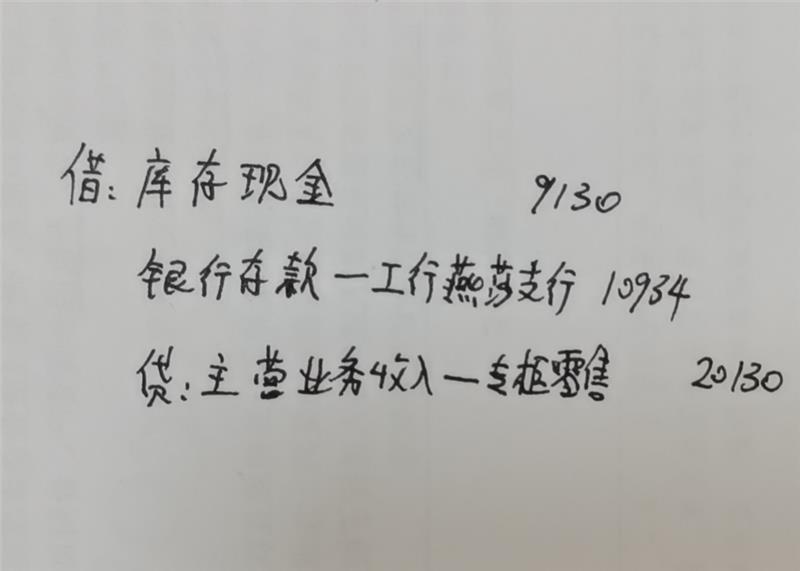 借：库存现金 9130
银行存款一工行燕莎支行 10934
贷：主营业务收入一专柜零售 20130